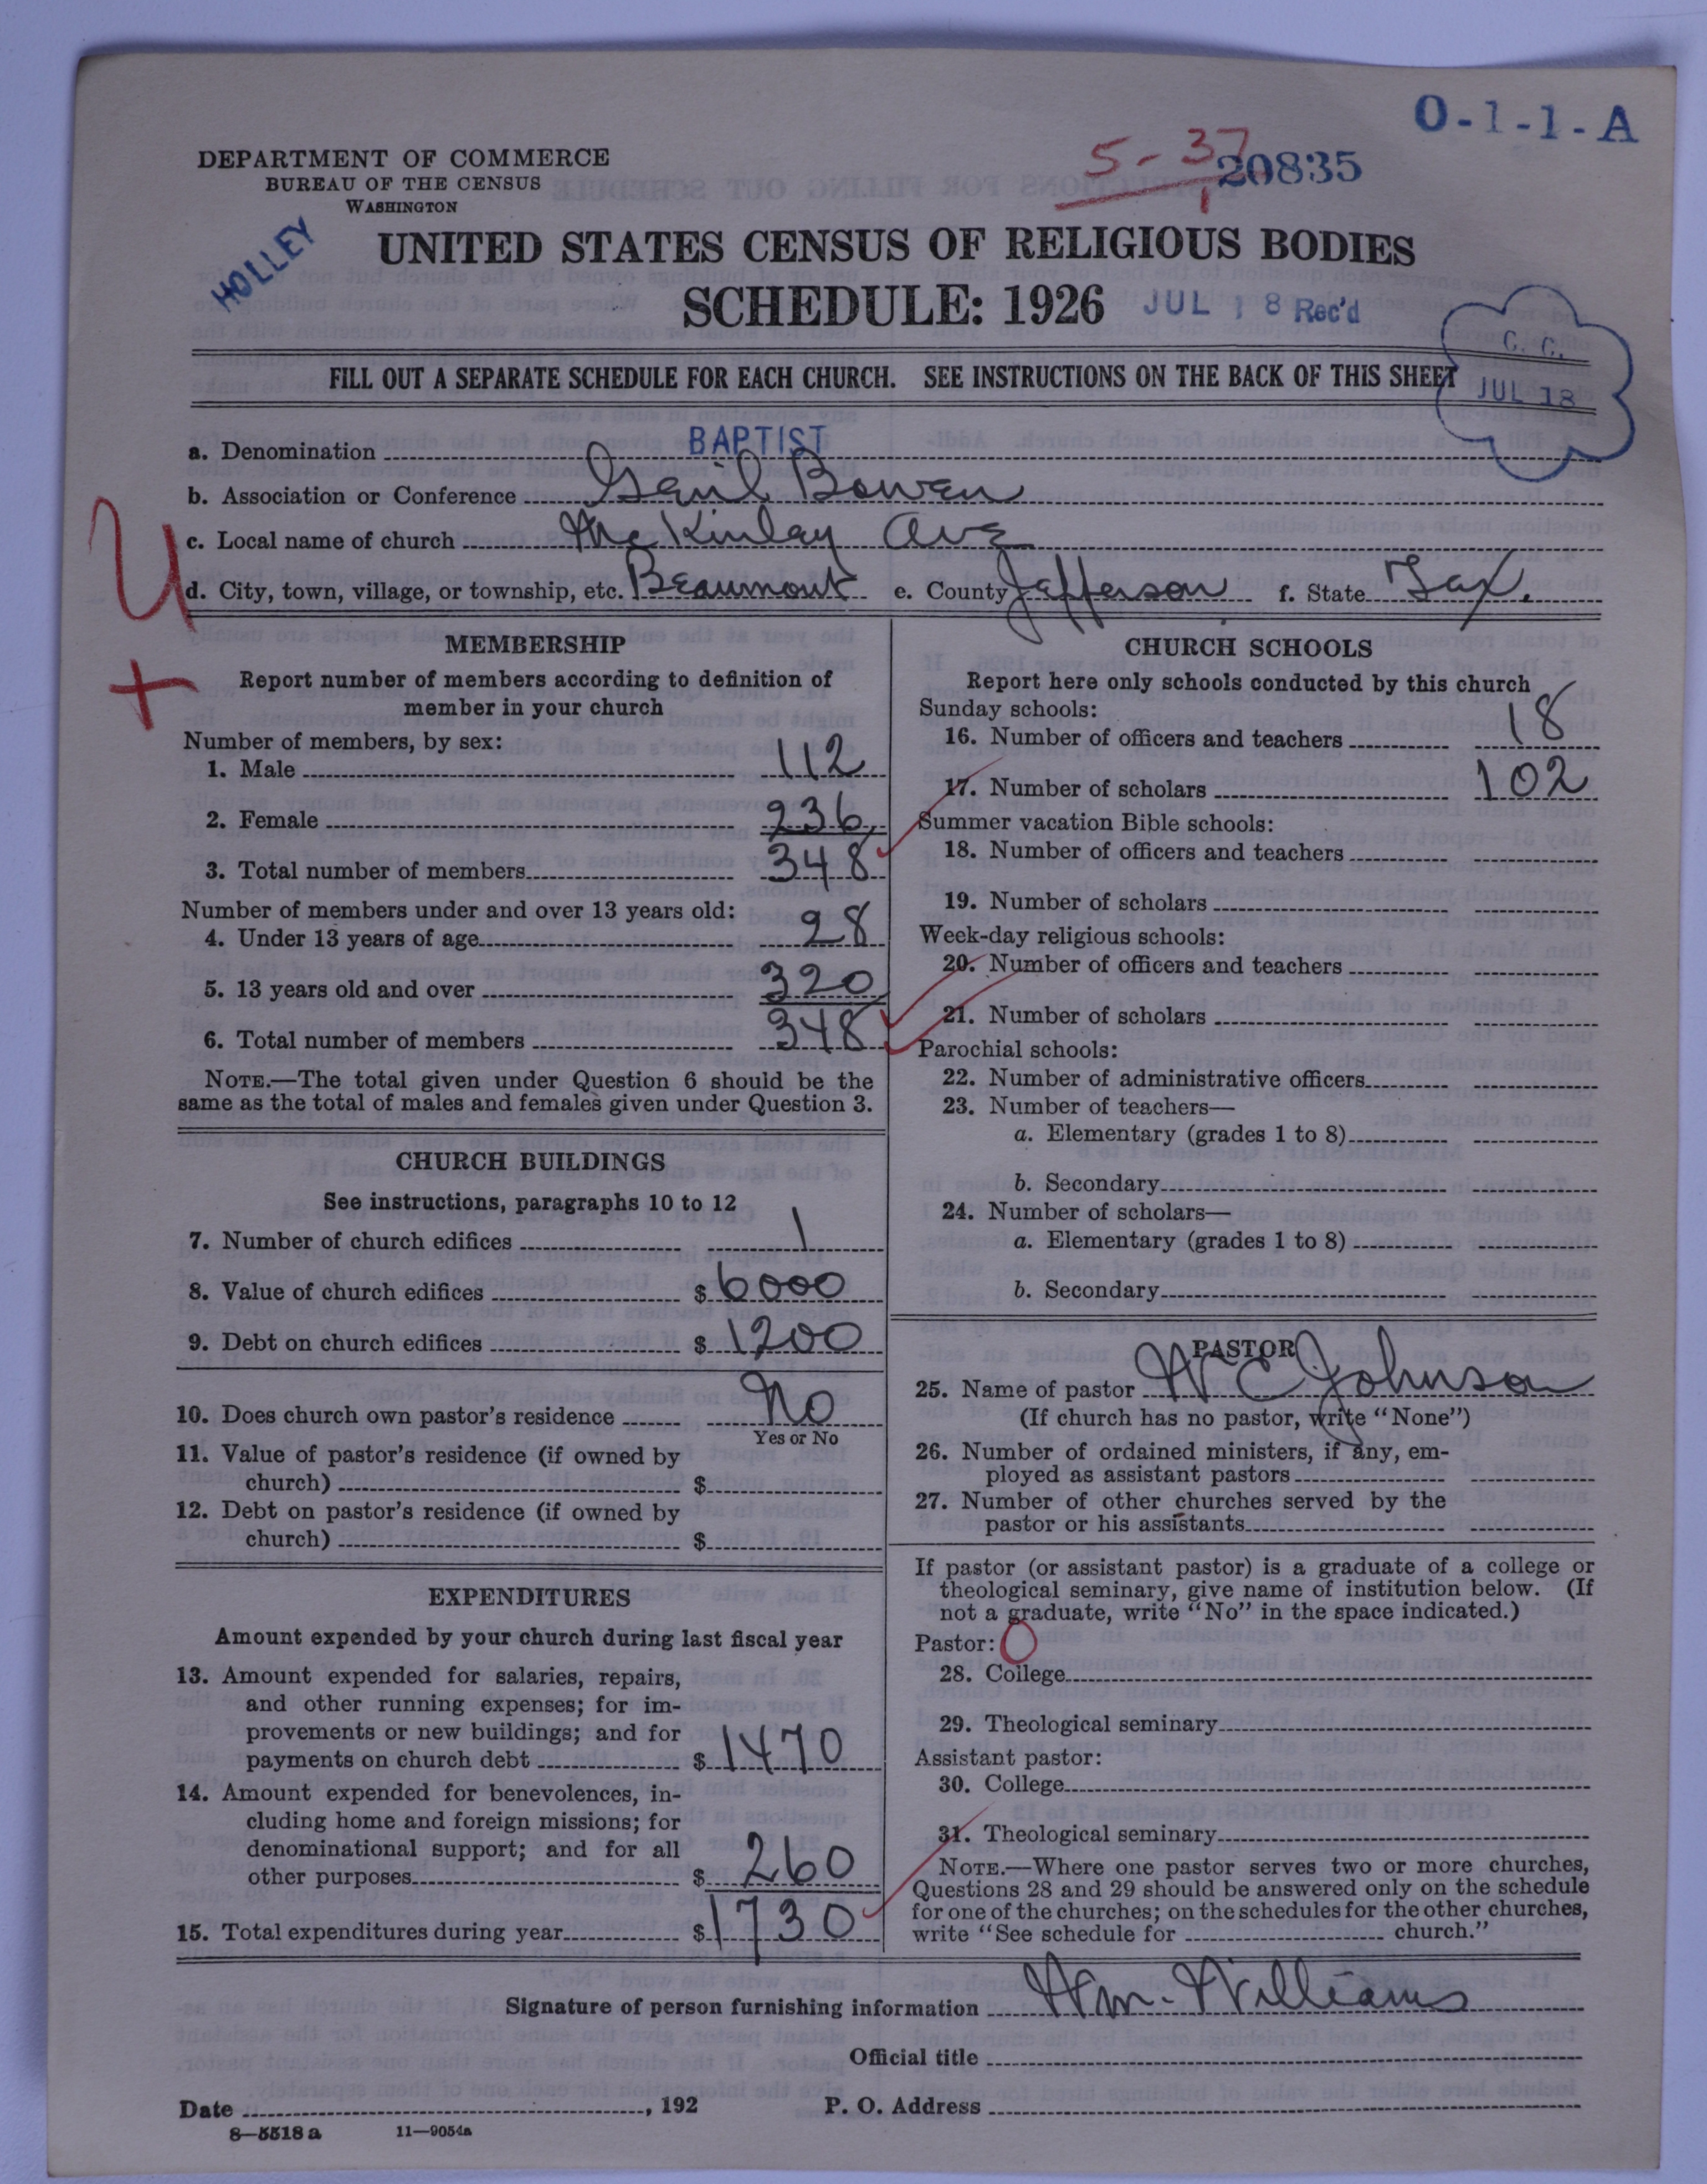 O-1-1-A
5-37
1
20835
DEPARTMENT OF COMMERCE
BUREAU OF THE CENSUS
WASHINGTON
HOLLEY
UNITED STATES CENSUS OF RELIGIOUS BODIES
SCHEDULE: 1926 JUL 18 Rec'd
C. C.
JUL 18
FILL OUT A SEPARATE SCHEDULE FOR EACH CHURCH. SEE INSTRUCTIONS ON THE BACK OF THIS SHEET
a. Denomination BAPTIST
b. Association or Conference Genil Bowen
c. Local name of church McKinlay Ave
d. City, town, village, or township, etc. Beaumont e. County Jefferson f. State Tex.
U
+
MEMBERSHIP
Report number of members according to definition of
member in your church
Number of members, by sex:
1. Male 112
2. Female 236
3. Total number of members 348
Number of members under and over 13 years old:
4. Under 13 years of age 28
5. 13 years old and over 320
6. Total number of members 348
NOTE.—The total given under Question 6 should be the
same as the total of males and females given under Question 3.
CHURCH BUILDINGS
See instructions, paragraphs 10 to 12
7. Number of church edifices 1
8. Value of church edifices $ 6000
9. Debt on church edifices $ 1200
10. Does church own pastor's residence No
Yes or No
11. Value of pastor's residence (if owned by
church) $
12. Debt on pastor's residence (if owned by
church) $
EXPENDITURES
Amount expended by your church during last fiscal year
13. Amount expended for salaries, repairs,
and other running expenses; for im-
provements or new buildings; and for
payments on church debt $ 1470
14. Amount expended for benevolences, in-
cluding home and foreign missions; for
denominational support; and for all
other purposes $ 260
15. Total expenditures during year $ 1730
CHURCH SCHOOLS
Report here only schools conducted by this church
Sunday schools:
16. Number of officers and teachers 18
17. Number of scholars 102
Summer vacation Bible schools:
18. Number of officers and teachers
19. Number of scholars
Week-day religious schools:
20. Number of officers and teachers
21. Number of scholars
Parochial schools:
22. Number of administrative officers
23. Number of teachers—
a. Elementary (grades 1 to 8)
b. Secondary
24. Number of scholars—
a. Elementary (grades 1 to 8)
b. Secondary
PASTOR
25. Name of pastor W C Johnson
(If church has no pastor, write "None")
26. Number of ordained ministers, if any, em-
ployed as assistant pastors
27. Number of other churches served by the
pastor or his assistants
If pastor (or assistant pastor) is a graduate of a college or
theological seminary, give name of institution below. (If
not a graduate, write "No" in the space indicated.)
Pastor: O
28. College
29. Theological seminary
Assistant pastor:
30. College
31. Theological seminary
NOTE.—Where one pastor serves two or more churches,
Questions 28 and 29 should be answered only on the schedule
for one of the churches; on the schedules for the other churches,
write "See schedule for church."
Signature of person furnishing information Wm. Williams
Official title
Date , 192 P. O. Address
8—5518 a 11—9054a